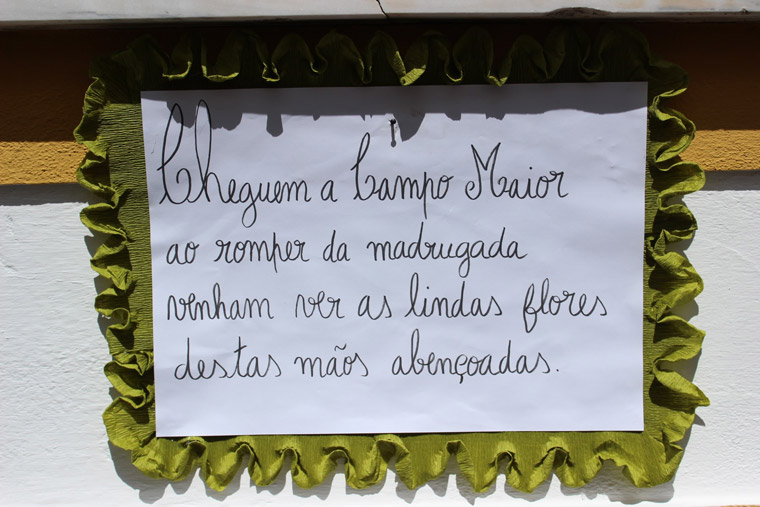 Cheguem a Campo Maior
ao romper da madrugada
venham ver as lindas flores
destas mãos abençoadas.